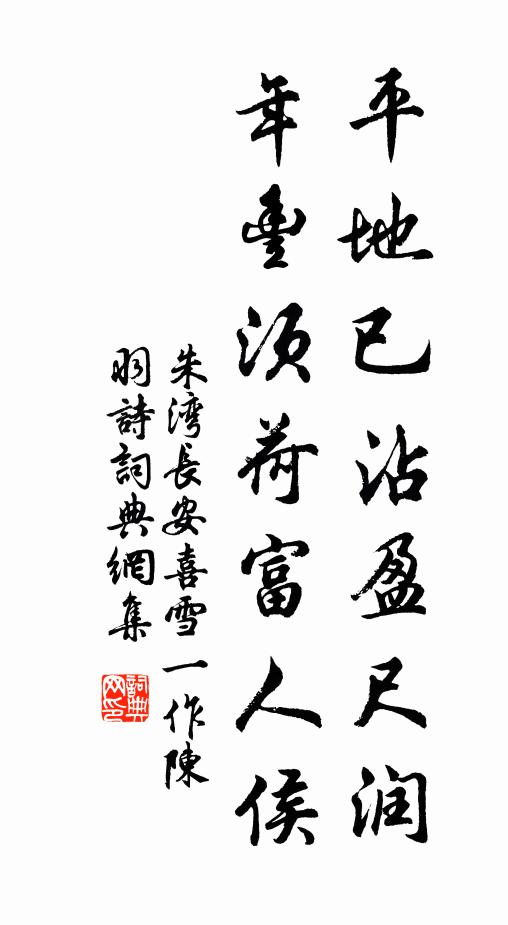 平地已沾盈尺润
年豐须荷富人侯
朱湾長安喜雪一作陳
羽詩詞典網集
詞典
网印